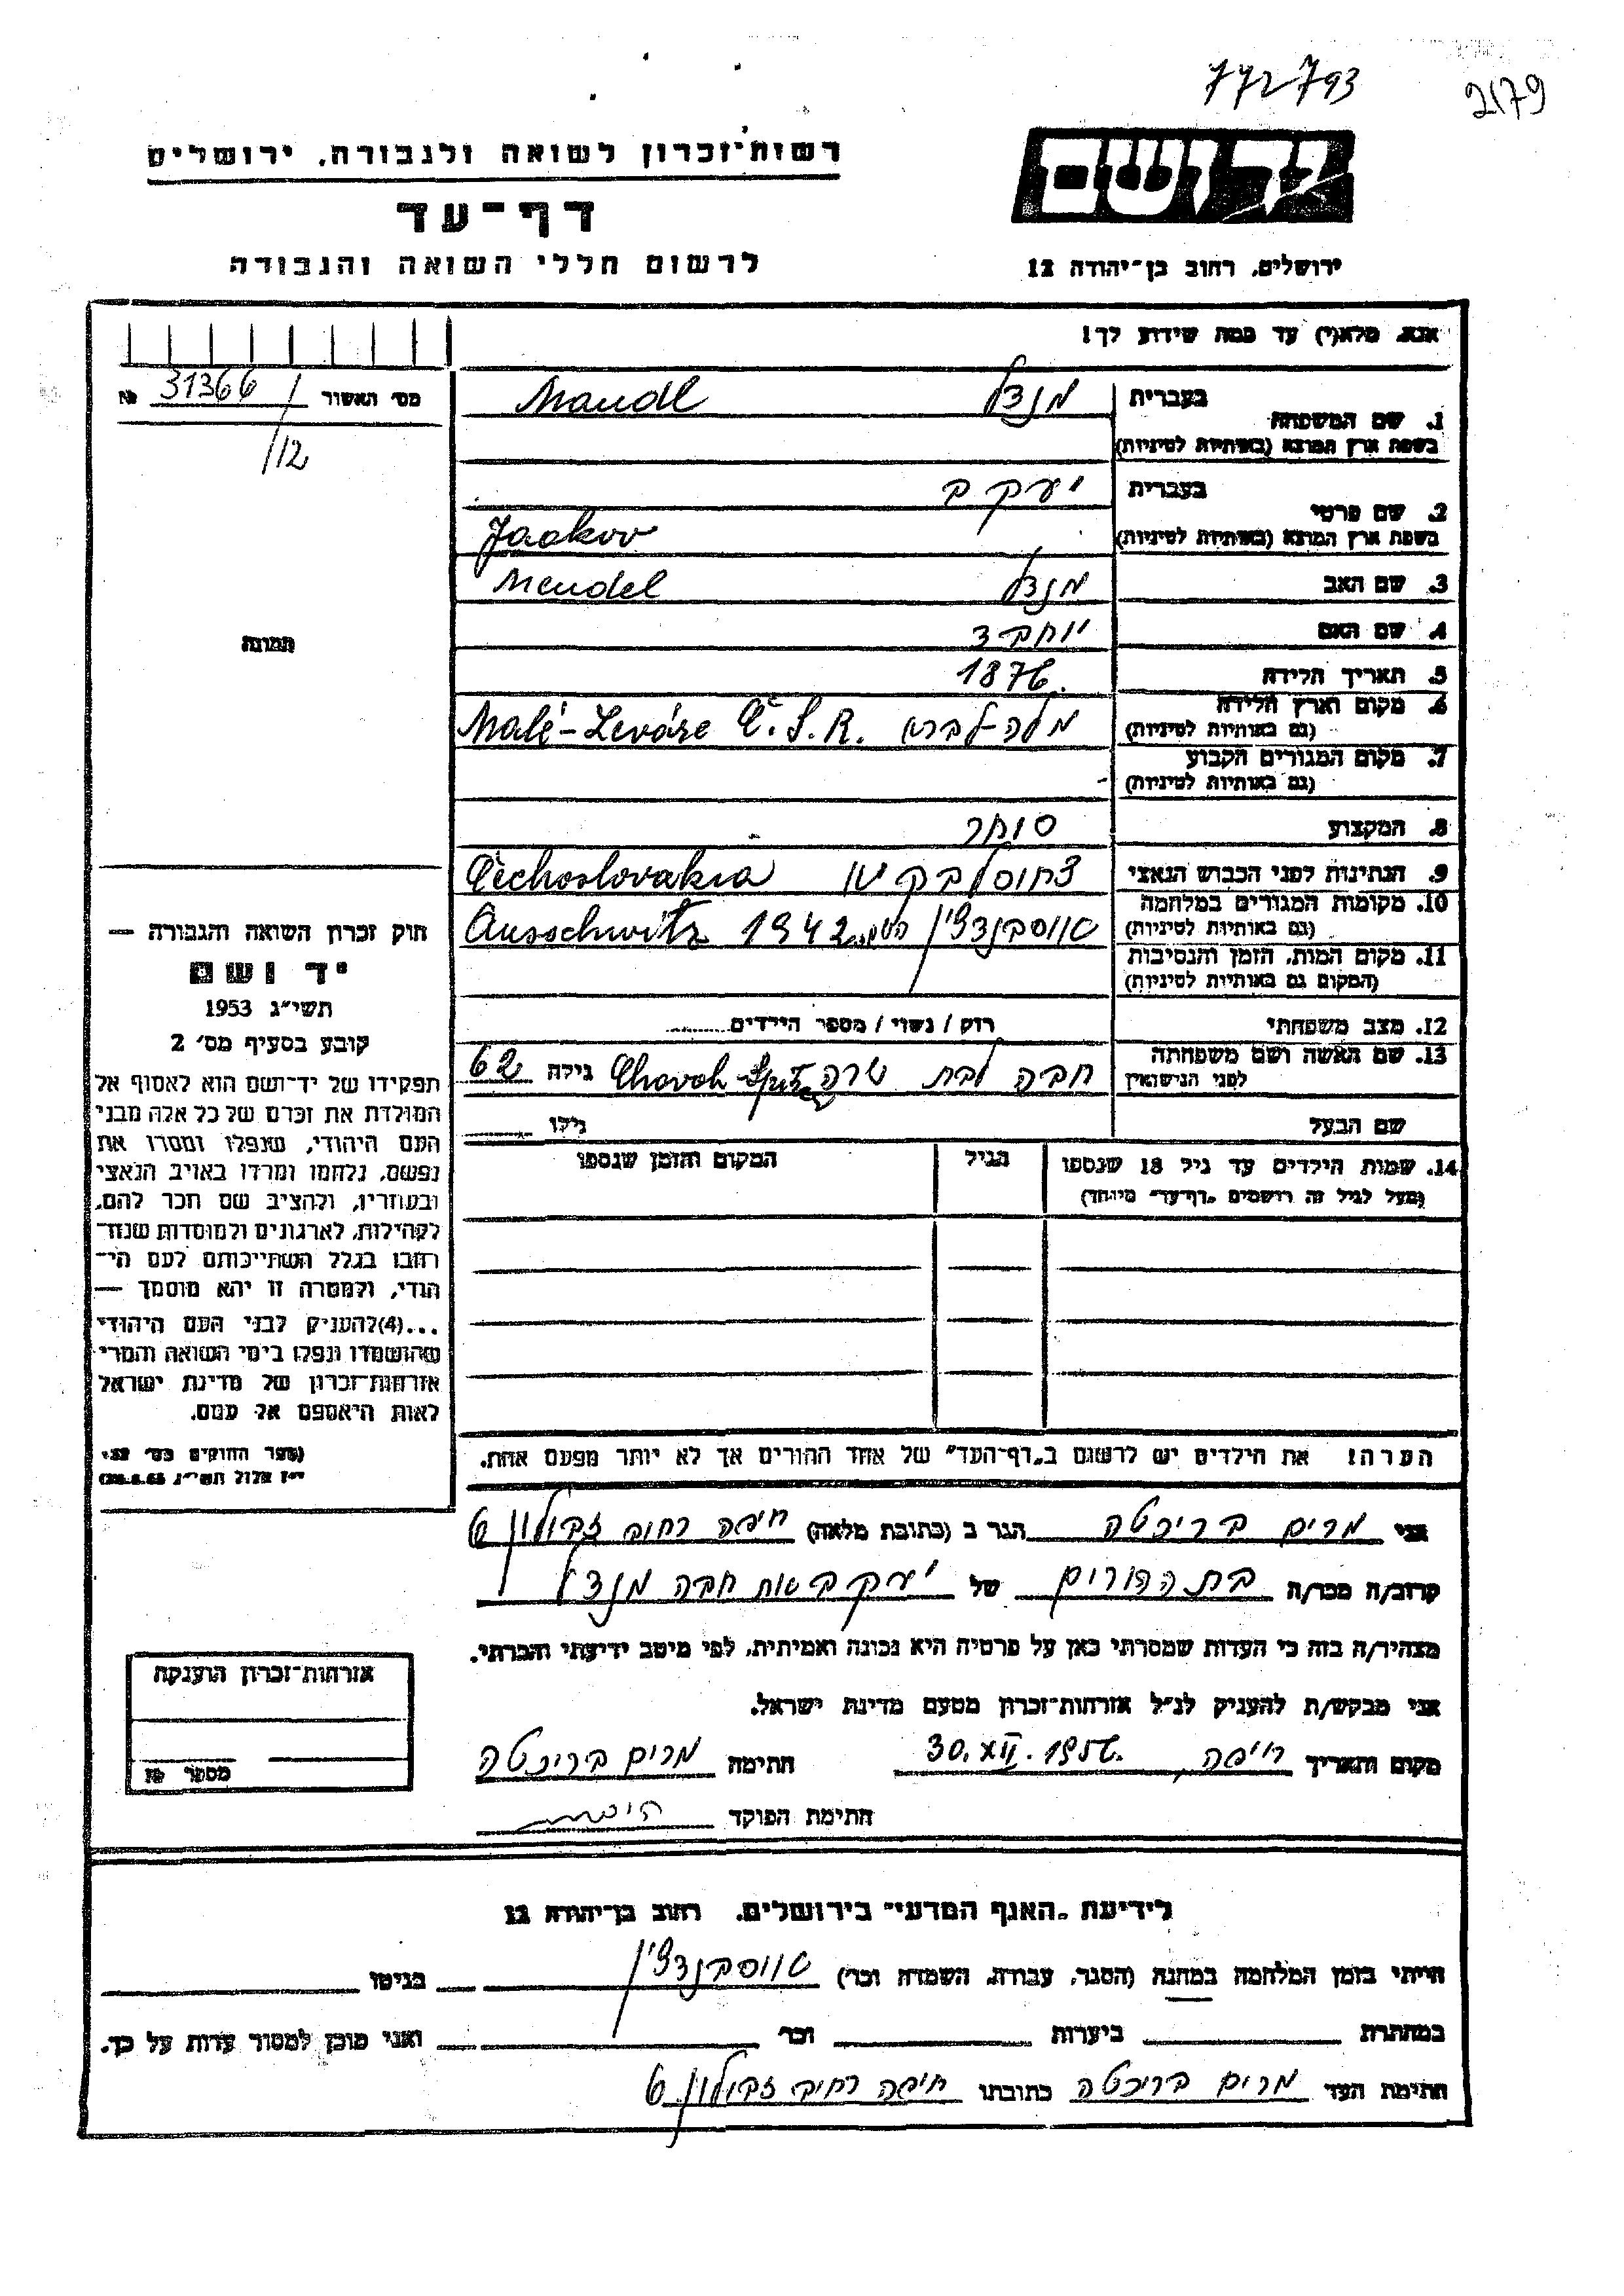 772793
2179
יד ושם
רשות־זכרון לשואה ולגבורה, ירושלים
דף־עד
לרשום חללי השואה והגבורה
ירושלים, רחוב בן־יהודה 12
אנא, מלא(י) עד כמה שידוע לך!
מס׳ האשור № 31366/
/12
בעברית מנדל Mandl
1. שם המשפחה
בשפת ארץ המוצא (באותיות לטיניות)
בעברית יעקב
2. שם פרטי
בשפת ארץ המוצא (באותיות לטיניות) Jaakov
3. שם האב מנדל Mendel
4. שם האם יוחבד
5. תאריך הלידה 1876.
6. מקום וארץ הלידה
(גם באותיות לטיניות) מלה-לברא Malé-Leváre Č.S.R.
7. מקום המגורים הקבוע
(גם באותיות לטיניות)
8. המקצוע סוחר
9. הנתינות לפני הכבוש הנאצי Čechoslovakia
10. מקומות המגורים במלחמה
(גם באותיות לטיניות) 1942 Ausschwitz
11. מקום המות, הזמן והנסיבות
(המקום גם באותיות לטיניות)
12. מצב משפחתי רוק / נשוי / מספר הילדים
13. שם האשה ושם משפחתה
לפני הנישואין חבה לבת שרה Chavah Spitzer גילה 62
שם הבעל גילו
14. שמות הילדים עד גיל 18 שנספו הגיל המקום והזמן שנספו
(מעל לגיל זה רושמים „דף־עד״ מיוחד)
הערה! את הילדים יש לרשום ב„דף־העד״ של אחד ההורים אך לא יותר מפעם אחת.
תמונה
חוק זכרון השואה והגבורה —
יד ושם
תשי״ג 1953
קובע בסעיף מס׳ 2
תפקידו של יד־ושם הוא לאסוף אל
המולדת את זכרם של כל אלה מבני
העם היהודי, שנפלו ומסרו את
נפשם, נלחמו ומרדו באויב הנאצי
ובעוזריו, ולהציב שם וזכר להם,
לקהילות, לארגונים ולמוסדות שנח־
רבו בגלל השתייכותם לעם הי־
הודי, ולמטרה זו יהא מוסמך —
...(4)להעניק לבני העם היהודי
שהושמדו ונפלו בימי השואה והמרי
אזרחות־זכרון של מדינת ישראל
לאות היאספם אל עמם.
(ספר החוקים מס׳ 132,
י״ז אלול תשי״ג
אני מרים בריכטה הגר ב (כתובת מלאה) חיפה רחוב זבולון 6
קרוב/ה מכר/ה בת ההורים של יעקב ואת חבה מנדל
מצהיר/ה בזה כי העדות שמסרתי כאן על פרטיה היא נכונה ואמיתית, לפי מיטב ידיעתי והכרתי.
אני מבקש/ת להעניק לנ״ל אזרחות־זכרון מטעם מדינת ישראל.
מקום ותאריך חיפה, 30.XII.1956. חתימה מרים בריכטה
חתימת הפוקד
אזרחות־זכרון הוענקה
מספר №
לידיעת „האגף המדעי״ בירושלים, רחוב בן־יהודה 12
הייתי בזמן המלחמה במחנה (הסגר, עבודה, השמדה וכו׳) בגיטו
במחתרת ביערות וכו׳ ואני מוכן למסור עדות על כך.
חתימת העד מרים בריכטה כתובתו חיפה רחוב זבולון 6